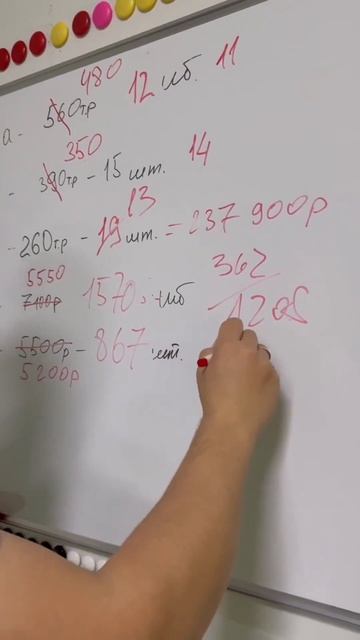 480
а - 560тр 12 иб. 11
350
- 390тр - 15 шт. 14
13
- 260тр - 19 шт. = 237 900р
5550 362
7100р 1570 - иб 1208
- 5500р - 867 шт.
5200р